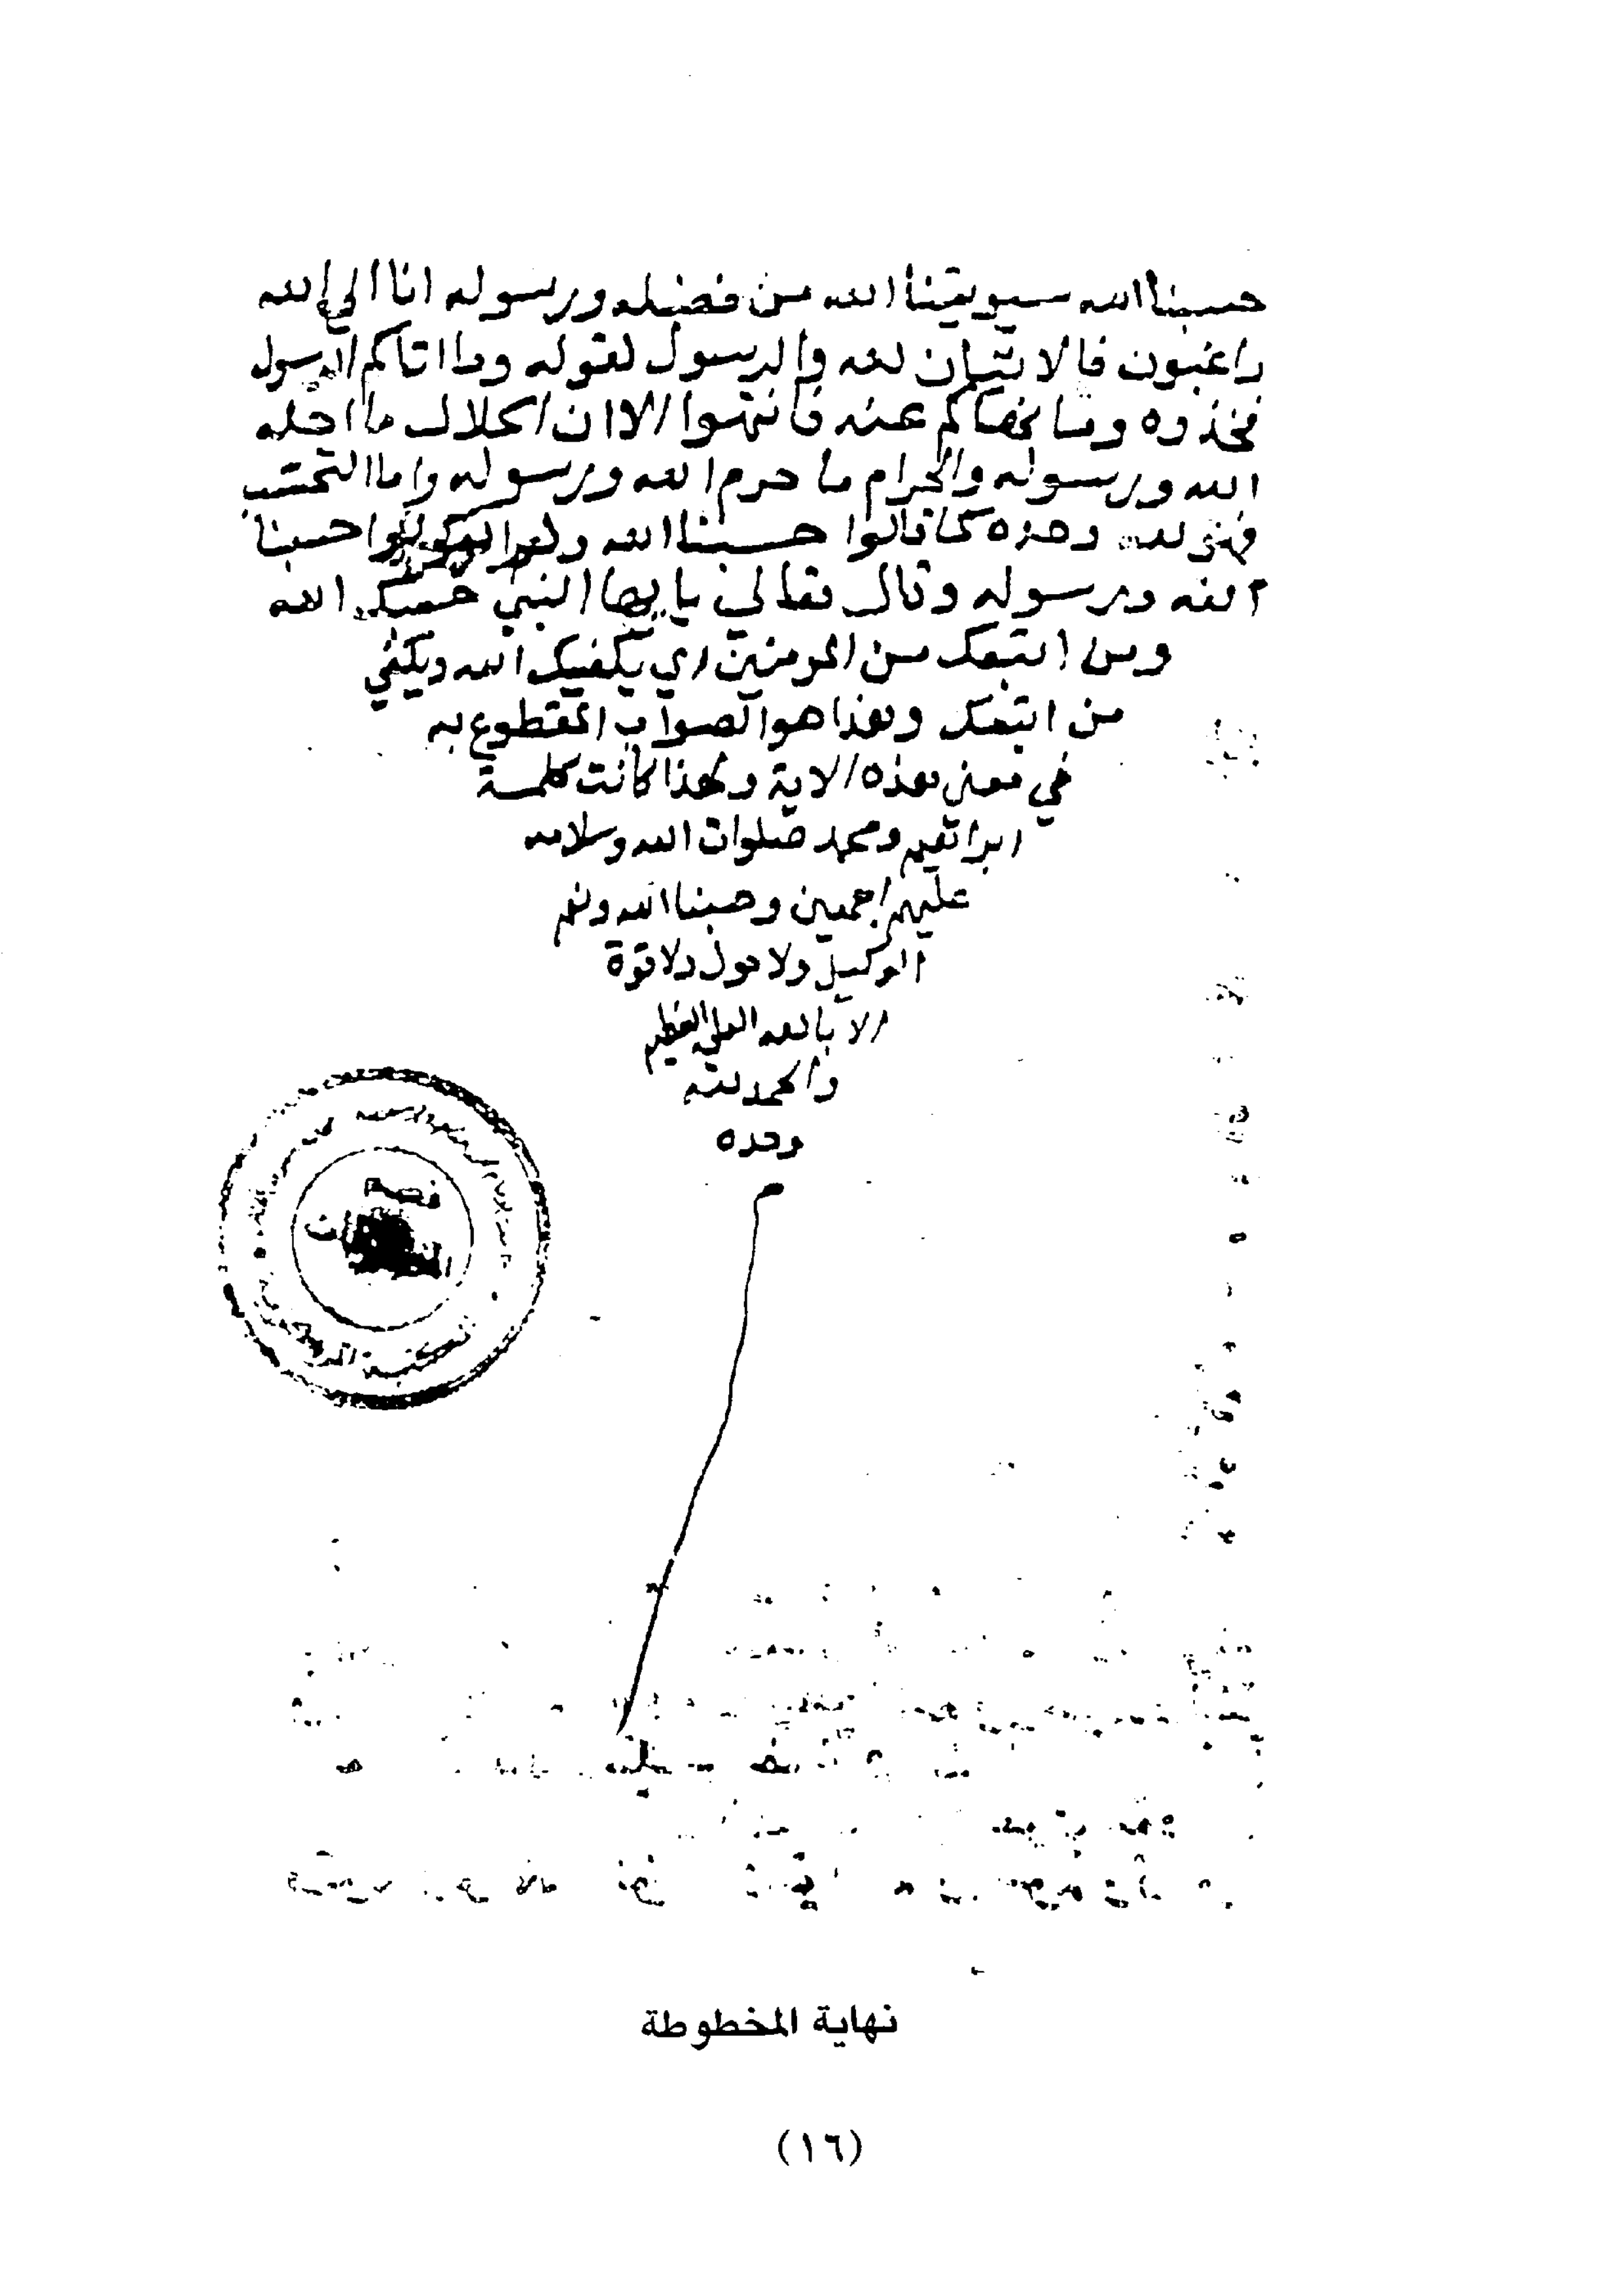 حسبنا الله سيوتينا الله من فضله ورسوله انا الي الله
راغبون فالاتيان لله والرسول لقوله وما اتاكم الرسول
فخذوه وما نهاكم عنه فانتهوا الا ان الحلال ما احله
الله ورسوله والحرام ما حرم الله ورسوله واما التحسب
فهو لله وحده كما قالوا حسبنا الله ولم يقولوا حسبنا
الله ورسوله وقال تعالي يا يها النبي حسبك الله
ومن اتبعك من المومنين اي يكفيك الله ويكفي
من اتبعك وهذا هو الصواب المقطوع به
في معني هذه الاية ولهذا كانت كلمة
ابراهيم ومحمد صلوات الله وسلامه
عليهم اجمعين وحسبنا الله ونعم
الوكيل ولا حول ولا قوة
الا بالله العلي العظيم
والحمد لله
وحده
قسم
نهاية المخطوطة
(١٦)